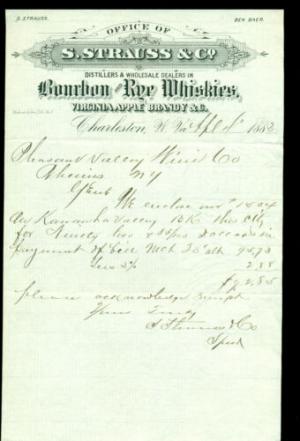 S. STRAUSS. BEN BAER.
OFFICE OF
S. STRAUSS & Co.
DISTILLERS & WHOLESALE DEALERS IN
Bourbon and Rye Whiskies,
VIRGINIA APPLE BRANDY &C.
Charleston, W. Va. Apl 4th 1883
Pleasant Valley Wine Co
Rheims NY
Gents
We enclose
Kanawha Valley Bk this City
for Ninety two
payment of Bill Mch 23
Less 5%
please acknowledge receipt
Yours Truly
S Strauss & Co